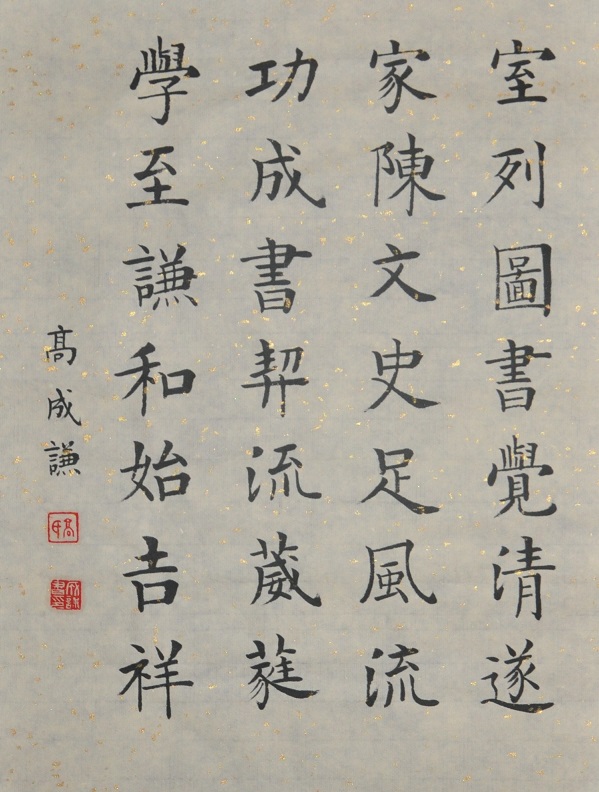 室列圖書覺清遂
家陳文史足風流
功成書契流葳蕤
學至謙和始吉祥
髙成謙